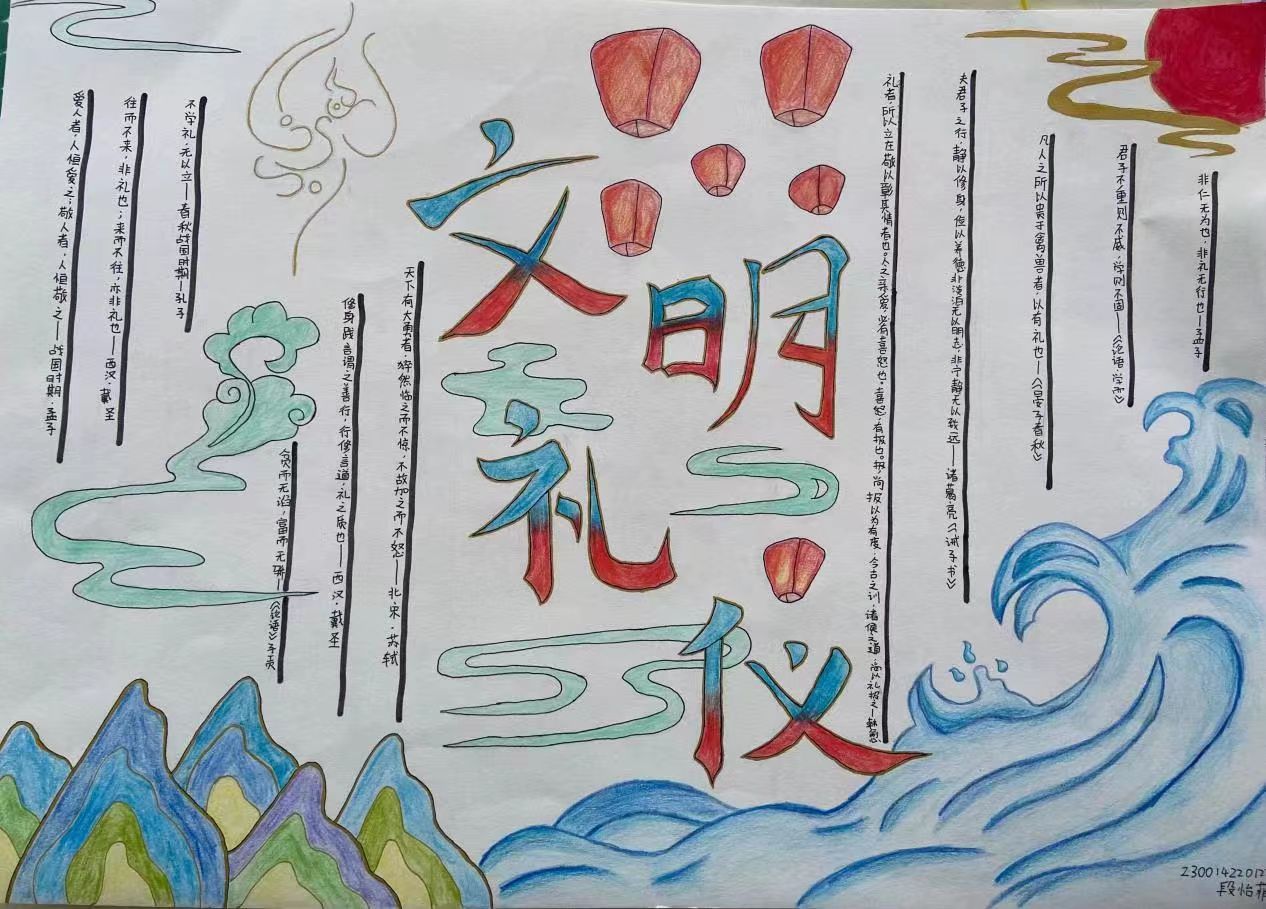 文明
礼仪
非仁无为也，非礼无行也——孟子
君子不重则不威，学则不固——《论语·学而》
凡人之所以贵于禽兽者，以有礼也——《晏子春秋》
夫君子之行，静以修身，俭以养德非淡泊无以明志，非宁静无以致远——诸葛亮《诫子书》
礼者，所以立在敬以彰其情者也。人之亲爱，必有喜怒也。喜怒，有报也。报，尚报以为有度，今古之训，诸侯之道，
天下有大勇者，猝然临之而不惊，不故加之而不怒——北宋·苏轼
修身践言谓之善行，行修言道，礼之质也——西汉·戴圣
贪而无谄，富而无骄——《论语》子贡
不学礼，无以立——春秋战国时期——孔子
往而不来，非礼也；来而不往，亦非礼也——西汉·戴圣
爱人者，人恒爱之；敬人者，人恒敬之——战国时期·孟子
23001422012
段怡